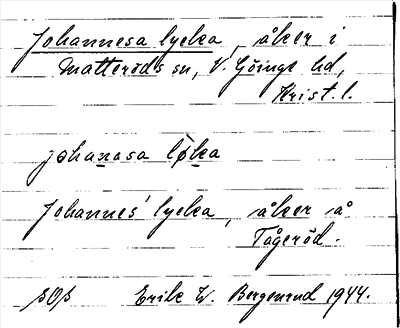 Johannesa lycka, åker i
Matteröds sn, V. Göinge hd,
Krist. l.
johanasa lø̀ka
Johannes' lycka, åker å
Tågeröd.
SOS Erik W. Bergenrud 1944.